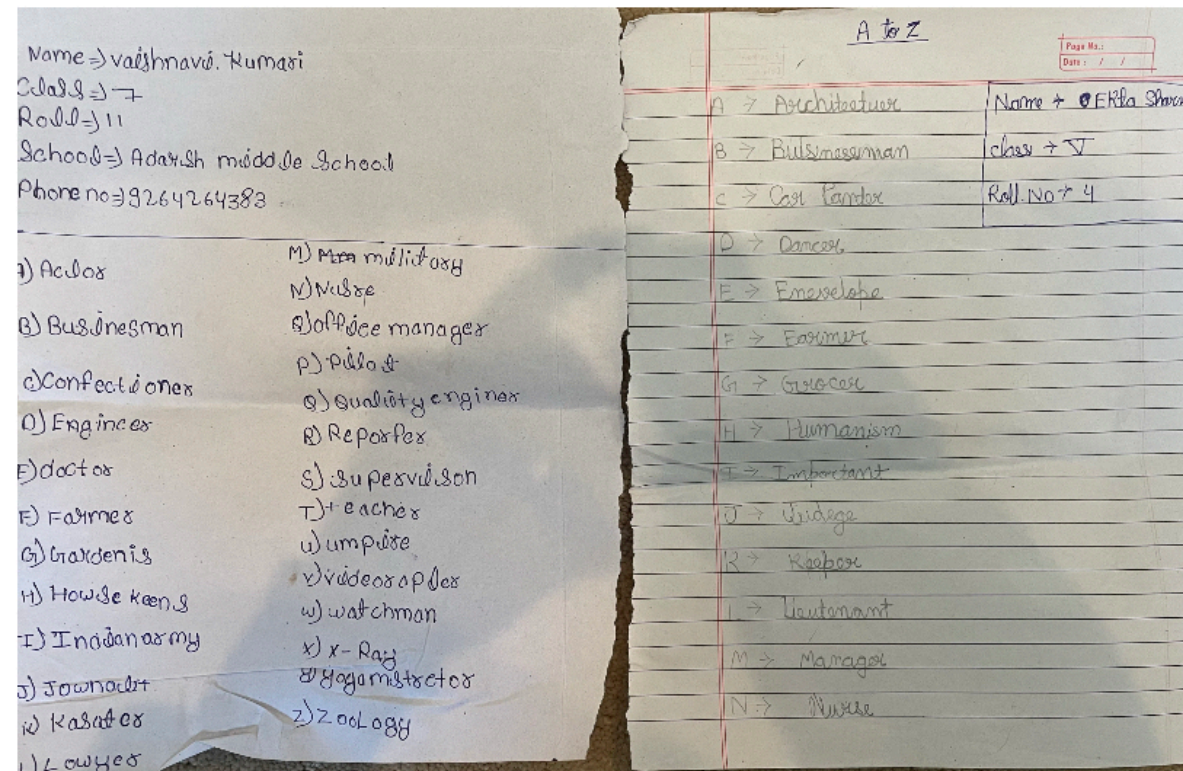 Name⇒ vaishnavi. Kumari
Class⇒ 7
Roll⇒ 11
School⇒ Adarsh middle School
Phone no⇒ 9264264383
A) Actor
B) Businesman
C) Confectioner
D) Engineer
E) doctor
F) Farmer
G) Gardenis
H) Howse Keens
I) Inadan army
J) Jownadit
K) Kasator
L) Lowyer
M) military
N) Nusre
O) office manager
P) Pillot
Q) Quality enginer
R) Reporfer
S) Supervison
T) teacher
U) umpire
V) videorapler
W) watchman
X) X-Ray
Y) Yogamistretor
Z) Zoology
A to Z
Page No.:
Date : / /
Name → Ekta
class → V
Roll. No → 4
A → Architectuer
B → Butsinessman
C → Car Panter
D → Dancer
E → Enevelope
F → Earmur
G → Grocer
H → Humanism
I → Important
J → Juidege
K → Keeper
L → Lieutenant
M → Manager
N → Nurse